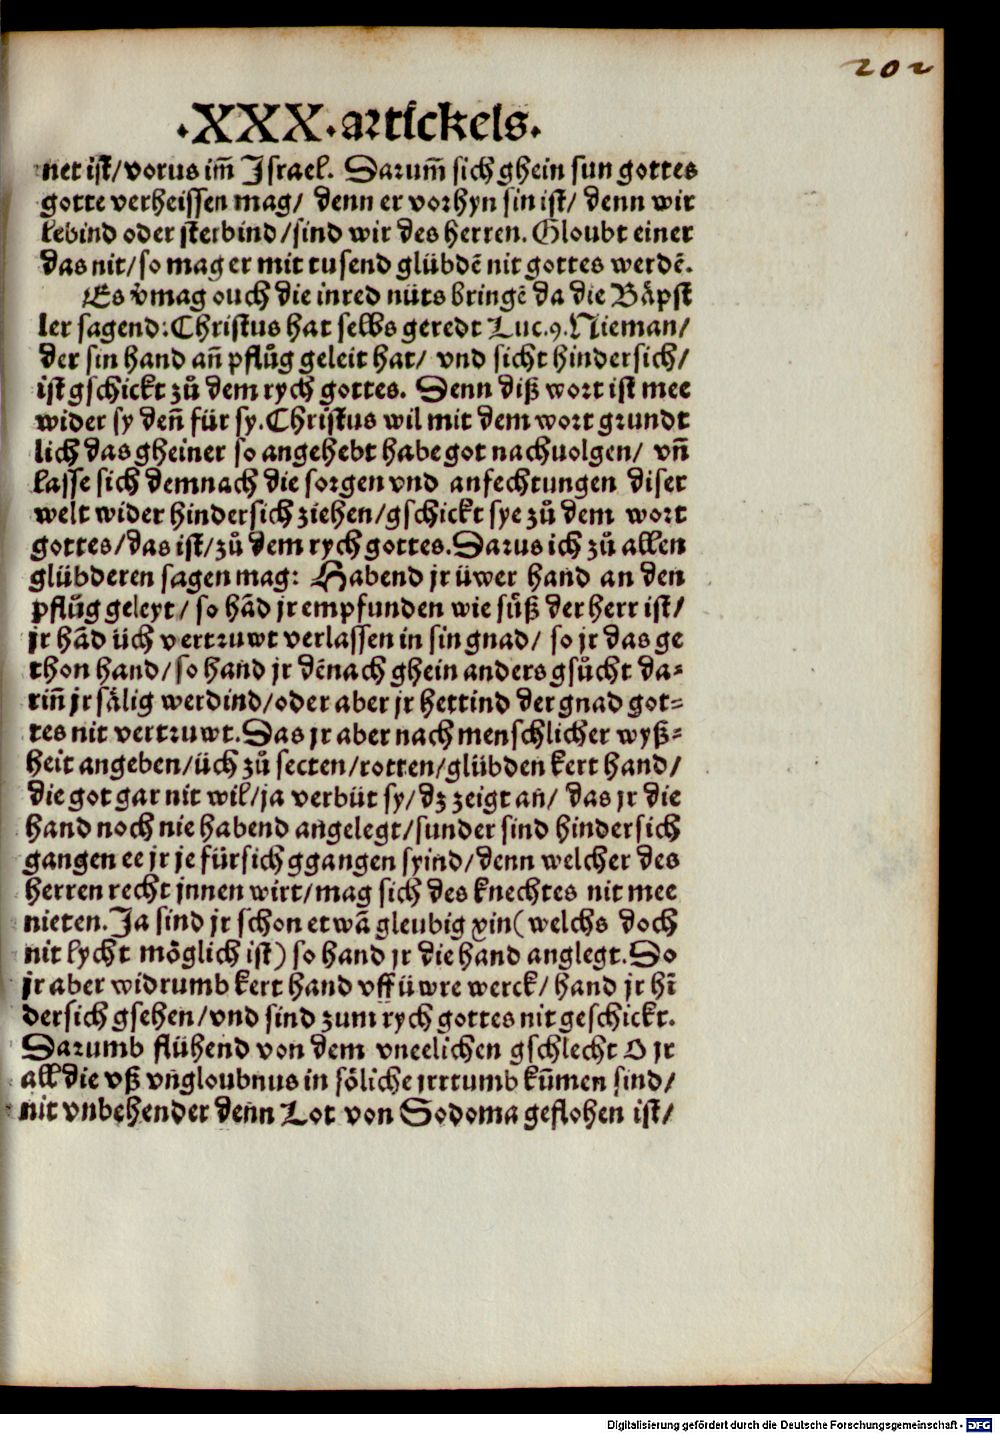 202
.XXX.artickels.
net ist/vorus im̃ Israel. Darum̃ sich ghein sun gottes
gotte verheissen mag/ denn er vorhyn sin ist/ denn wir
lebind oder sterbind/sind wir des herren. Gloubt einer
das nit/so mag er mit tusend glübdē nit gottes werdē.
Es v̄mag ouch die inred nüts bringē da die Bäpst
ler sagend: Christus hat selbs geredt Luc.9. Nieman/
der sin hand an̄ pflůg geleit hat/ vnd sicht hindersich/
ist gschickt zů dem rych gottes. Denn diß wort ist mee
wider sy den̄ für sy. Christus wil mit dem wort grundt
lich das gheiner so angehebt habe got nachuolgen/ vn̄
lasse sich demnach die sorgen vnd anfechtungen diser
welt wider hindersich ziehen/gschickt sye zů dem wort
gottes/das ist/zů dem rych gottes. Darus ich zů allen
glübderen sagen mag: Habend jr üwer hand an den
pflůg geleyt/ so hād jr empfunden wie süß der herr ist/
jr hād üch vertruwt verlassen in sin gnad/ so jr das ge
thon hand/so hand jr dēnach ghein anders gsůcht da-
rin̄ jr sälig werdind/oder aber jr hettind der gnad got=
tes nit vertruwt. Das jr aber nach menschlicher wyß=
heit angeben/üch zů secten/rotten/glübden kert hand/
die got gar nit wil/ja verbüt sy/dz zeigt an/ das jr die
hand noch nie habend angelegt/sunder sind hindersich
gangen ee jr je fürsich ggangen syind/denn welcher des
herren recht jnnen wirt/mag sich des knechtes nit mee
nieten. Ja sind jr schon etwā gleubig xin(welchs doch
nit lycht möglich ist) so hand jr die hand anglegt. So
jr aber widrumb kert hand vff üwre werck/ hand jr hī
dersich gsehen/vnd sind zum rych gottes nit geschickt.
Darumb flühend von dem vneelichen gschlecht O jr
all die vß vngloubnus in söliche jrrtumb kūmen sind/
nit vnbehender denn Lot von Sodoma geflohen ist/
Digitalisierung gefördert durch die Deutsche Forschungsgemeinschaft - DFG